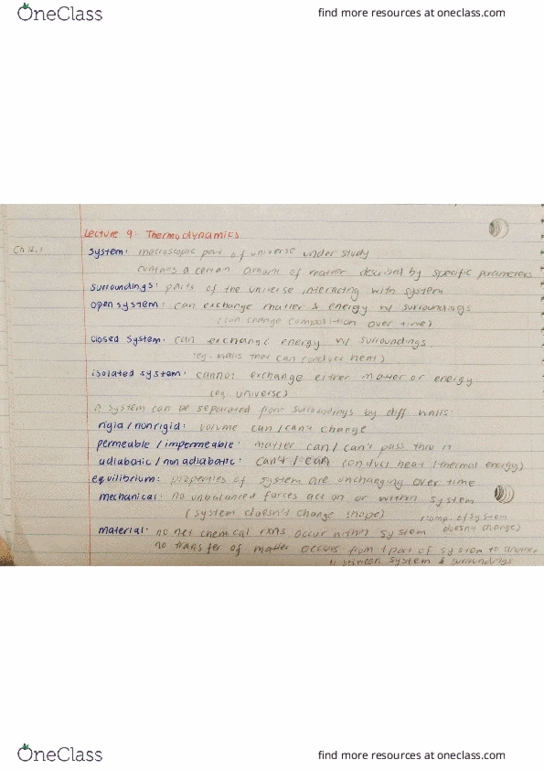 OneClass
find more resources at oneclass.com
Lecture 9: Thermodynamics
Ch 12.1
system: macroscopic part of universe under study
contains a certain amount of matter described by specific parameters
surroundings: parts of the universe interacting with system
open system: can exchange matter & energy w/ surroundings
(can change composition over time)
closed system: can exchange energy w/ surroundings
(eg. walls that can conduct heat)
isolated system: cannot exchange either matter or energy
(eg universe)
a system can be separated from surroundings by diff walls:
rigid / nonrigid: volume can / can't change
permeable / impermeable: matter can / can't pass thru it
adiabatic / non adiabatic: can't / can conduct heat (thermal energy)
equilibrium: properties of system are unchanging over time
mechanical: no unbalanced forces act on or within system
(system doesn't change shape)
(comp. of system
doesn't change)
material: no net chemical rxns occur within system
no transfer of matter occurs from 1 part of system to another
between system & surroundings
OneClass
find more resources at oneclass.com